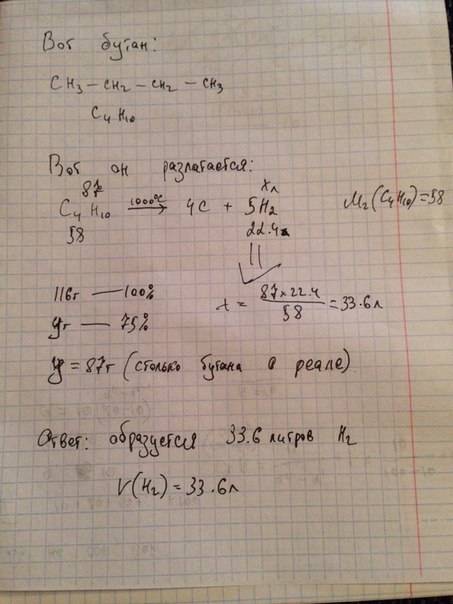 Вот бутан:
CH3 – CH2 – CH2 – CH3
C4H10
Вот он разлагается:
87 xл
C4H10 1000°C → 4C + 5H2 Mr(C4H10)=58
58 22.4
116г — 100% x = 87×22.4 / 58 = 33.6л
yг — 75%
y = 87г (столько бутана в реале)
Ответ: образуется 33.6 литров H2
V(H2)=33.6л